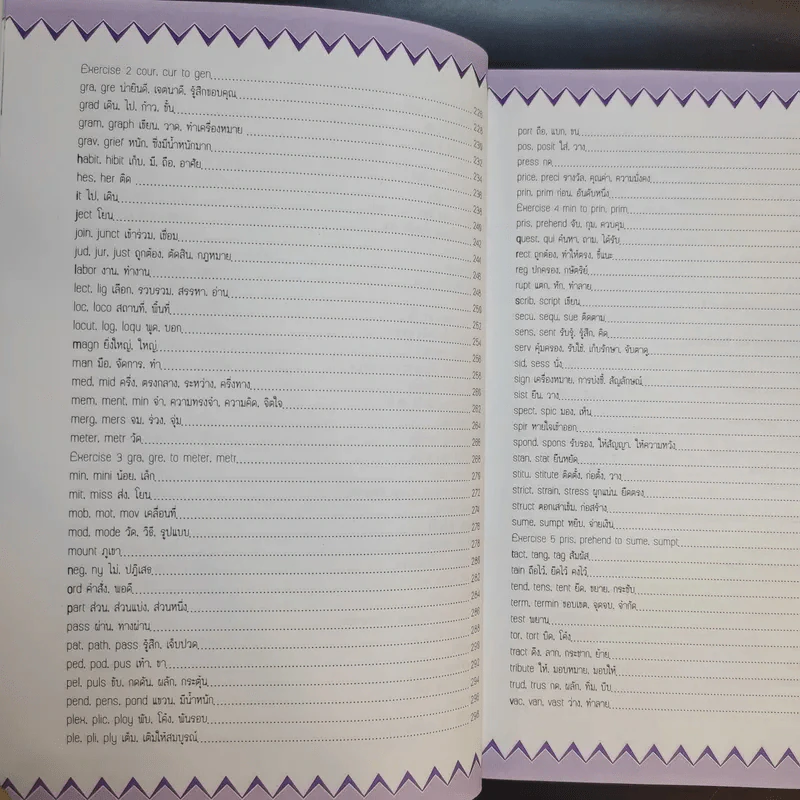 Exercise 2 cour, cur to gen
gra, gre น่ายินดี, เจตนาดี, รู้สึกขอบคุณ
grad เดิน, ไป, ก้าว, ขั้น
gram, graph เขียน, วาด, ทำเครื่องหมาย
grav, grief หนัก, ซึ่งมีน้ำหนักมาก
habit, hibit เก็บ, มี, ถือ, อาศัย
hes, her ติด
it ไป, เดิน
ject โยน
join, junct เข้าร่วม, เชื่อม
jud, jur, just ถูกต้อง, ตัดสิน, กฎหมาย
labor งาน, ทำงาน
lect, lig เลือก, รวบรวม, สรรหา, อ่าน
loc, loco สถานที่, พื้นที่
locut, log, loqu พูด, บอก
magn ยิ่งใหญ่, ใหญ่
man มือ, จัดการ, ทำ
med, mid ครึ่ง, ตรงกลาง, ระหว่าง, ครึ่งทาง
mem, ment, min จำ, ความทรงจำ, ความคิด, จิตใจ
merg, mers จม, ร่วง, จุ่ม
meter, metr วัด
Exercise 3 gra, gre, to meter, metr
min, mini น้อย, เล็ก
mit, miss ส่ง, โยน
mob, mot, mov เคลื่อนที่
mod, mode วัด, วิธี, รูปแบบ
mount ภูเขา
neg, ny ไม่, ปฏิเสธ
ord คำสั่ง, พอดี
part ส่วน, ส่วนแบ่ง, ส่วนหนึ่ง
pass ผ่าน, ทางผ่าน
pat, path, pass รู้สึก, เจ็บปวด
ped, pod, pus เท้า, ขา
pel, puls ขับ, กดดัน, ผลัก, กระตุ้น
pend, pens, pond แขวน, มีน้ำหนัก
plex, plic, ploy พับ, โค้ง, พันรอบ
ple, pli, ply เติม, เติมให้สมบูรณ์
port ถือ, แบก, ขน
pos, posit ใส่, วาง
press กด
price, preci รางวัล, คุณค่า, ความมั่งคง
prin, prim ก่อน, อันดับหนึ่ง
Exercise 4 min to prin, prim
pris, prehend จับ, กุม, ควบคุม
quest, qui ค้นหา, ถาม, ได้รับ
rect ถูกต้อง, ทำให้ตรง, ชี้แนะ
reg ปกครอง, กษัตริย์
rupt แตก, หัก, ทำลาย
scrib, script เขียน
secu, sequ, sue ติดตาม
sens, sent รับรู้, รู้สึก, คิด
serv คุ้มครอง, รับใช้, เก็บรักษา, จับตาดู
sid, sess นั่ง
sign เครื่องหมาย, การบ่งชี้, สัญลักษณ์
sist ยืน, วาง
spect, spic มอง, เห็น
spir หายใจเข้าออก
spond, spons รับรอง, ให้สัญญา, ให้ความหวัง
stan, stat ยืนหยัด
stitu, stitute ติดตั้ง, ก่อตั้ง, วาง
strict, strain, stress ผูกแน่น, ยืดตรง
struct ตอกเสาเข็ม, ก่อสร้าง
sume, sumpt หยิบ, จ่ายเงิน
Exercise 5 pris, prehend to sume, sumpt
tact, tang, tag สัมผัส
tain ถือไว้, ยึดไว้ คงไว้
tend, tens, tent ยืด, ขยาย, กระชับ
term, termin ขอบเขต, จุดจบ, จำกัด
test พยาน
tor, tort บิด, โค้ง
tract ดึง, ลาก, กระชาก, ย้าย
tribute ให้, มอบหมาย, มอบให้
trud, trus กด, ผลัก, ทิ่ม, บีบ
vac, van, vast ว่าง, ทำลาย